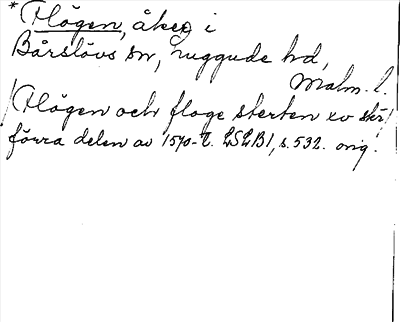 * Flögen, åker i
Bårslövs sn, Luggude hd,
Malm. l.
/Flögen och floge sterten xv skr/
förra delen av 1570-t. LSLB1, s. 532. orig.